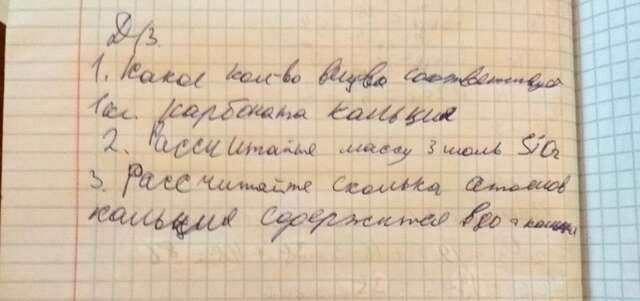 Д/з.
1. Какое кол-во вещ-ва соответствует
1 кг. карбоната кальция
2. Рассчитайте массу 3 моль SiO2
3. Рассчитайте сколька атомов
кальция содержится в 80 г кальция